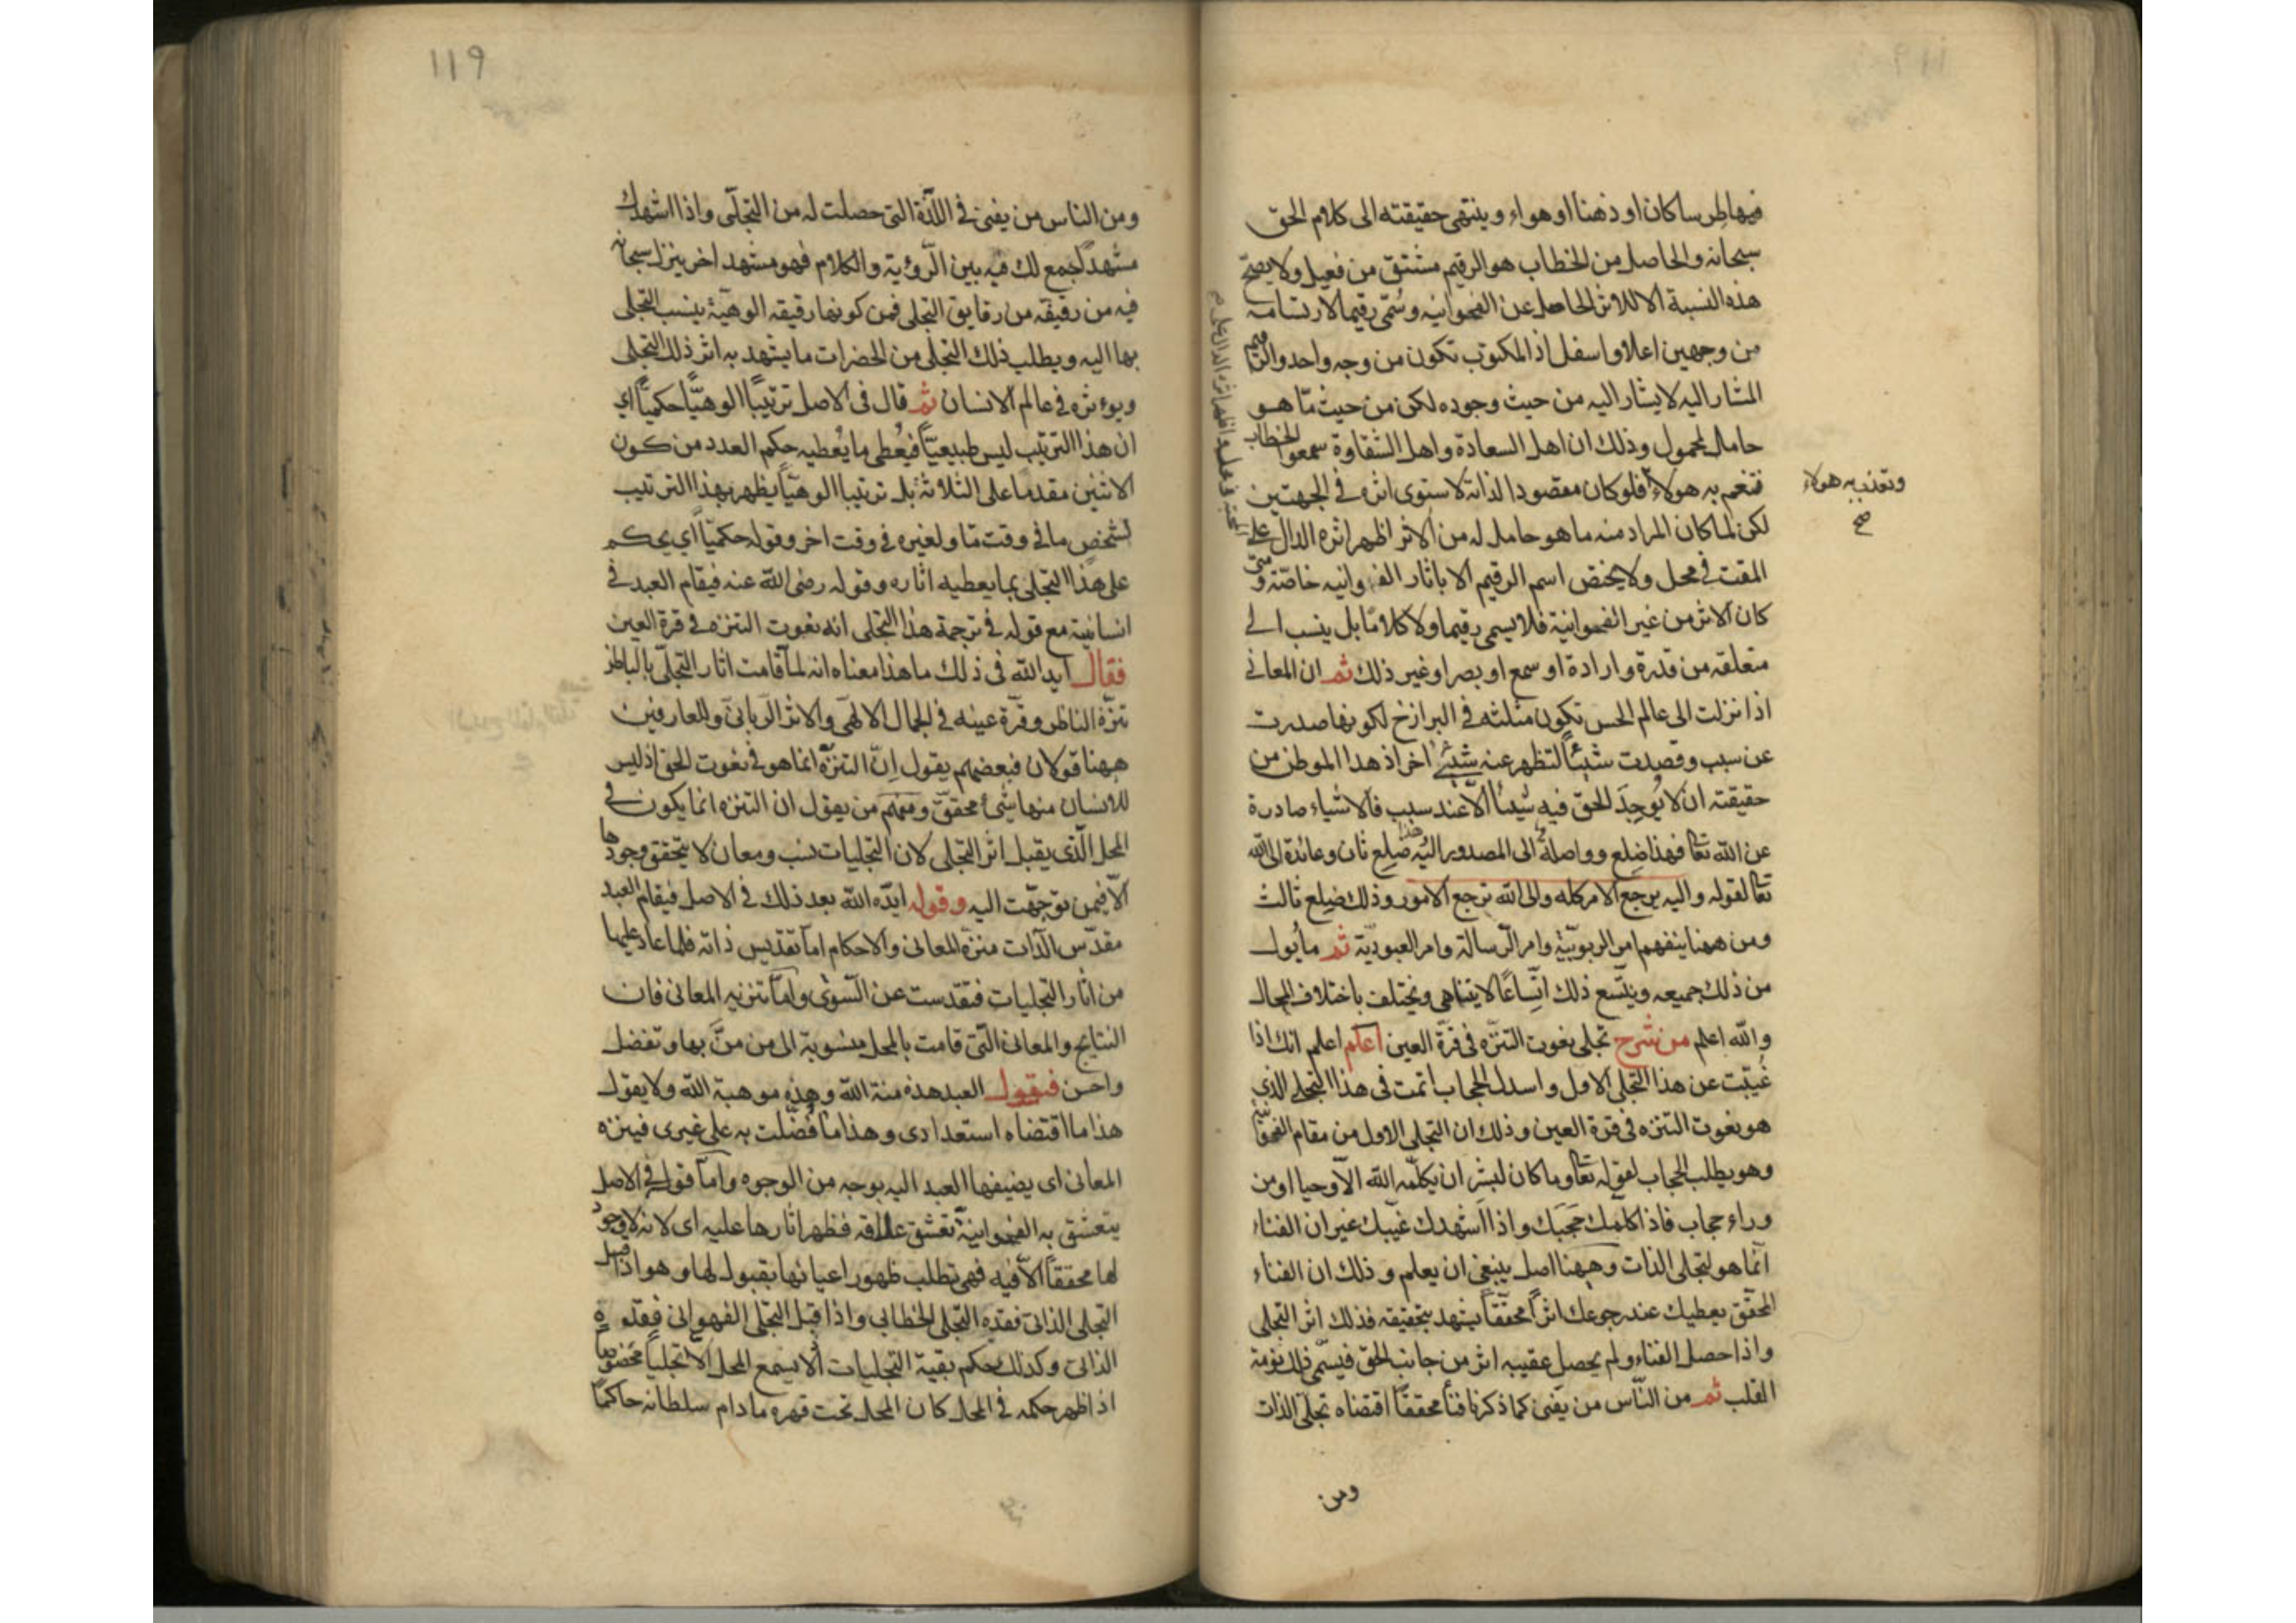 فيها طرسا كان او ذهنا او هواء وينتهى حقيقته الى كلام الحق
سبحانه والحاصل من الخطاب هو الرقيم مشتق من فعيل ولا يصحّ
هذه النسبة الا للاثر الحاصل عن الفهوانيه وسُمّى رقيما لارتسامه
من وجهين اعلا واسفل اذ المكتوب تكون من وجه واحد والرقيم
المشار اليه لا يشار اليه من حيث وجوده لكن من حيث مّا هو
حامل لمحمول وذلك ان اهل السعادة واهل الشقاوة سمعوا الخطاب
فتنعم به هولاء فلو كان مقصودا لذاته لاستوى اثره فى الجهتين
وتعذب به هولاء
صح
لكن لما كان المراد منه ما هو حامل له من الاثر اظهر اثره الدال على
المقت فى محل ولا يختص اسم الرقيم الا باثار الفهوانيه خاصّة ومتى
كان الاثر من غير الفهوانية فلا يسمى رقيما ولا كلامًا بل ينسب الى
متعلقه من قدرة وارادة او سمع او بصر او غير ذلك ثم ان المعانى
اذا نزلت الى عالم الحس تكون مثلثه فى البرازخ لكونها صدرت
عن سبب وقصدت شيئاً لتظهر عنه شيئ اخر اذ هذا الموطن من
حقيقته ان لا يُوجِدَ الحق فيه شيئا الّا عند سبب فالاشياء صادرة
عن الله تعا فهذا ضلع وواصلة الى المصدور اليه هذا ضلع ثان وعائدة الى الله
تعا لقوله واليه يرجع الامر كله والى الله ترجع الامور وذلك ضلع ثالث
ومن ههنا ينفهم امر الربوبيّة وامر الرسالة وامر العبوديّة ثم ما يُول
من ذلك جميعه ويتّسع ذلك اتّساعًا لا يتناهى ويختلف باختلاف المحال
والله اعلم من شرح تجلى نعوت التنزّه فى قرّة العين اعلم اعلم انك اذا
غُيّبت عن هذا التجلى الاول واسدل الحجاب اقمت فى هذا التجلى الذى
هو نعوت التنزه فى قرة العين وذلك ان التجلى الاول من مقام الفهوانيّة
وهو يطلب الحجاب لقوله تعا وما كان لبشر ان يكلّمه الله الّا وحيا او من
وراء حجاب فاذا كلمك حَجَبَك واذا اشهدك غيّبك غير ان الفناء
انّما هو لتجلى الذات وههنا اصل ينبغى ان يعلم وذلك ان الفناء
المحقّق يعطيك عند رجوعك اثراً محققاً يشهد بتحقيقه فذلك اثر التجلى
واذا حصل الفناء ولم يحصل عقيبه اثر من جانب الحق فيسمّى فلك نومة
القلب ثم من النّاس من يفنى كما ذكرنا فنأ محققاً اقتضاه تجلّى الذات
ومن
١١٩
ومن الناس من يفنى فى اللّذّة التى حصلت له من التجلّى واذا اشهدك
مشهداً جمع لك فيه بين الرّؤية والكلام فهو مشهد اخر ينزل سبحانه
فيه من رقيقه من رقايق التجلى فمن كونها رقيقه الوهيّة ينسب التجلى
بها اليه ويطلب ذلك التجلى من الحضرات ما يشهد به اثر ذلك التجلى
ويوءثره فى عالم الانسان ثم قال فى الاصل ترتيباً الوهيّاً حكميّاً اي
ان هذا الترتيب ليس طبيعيّاً فيُعطى ما يُعطيه حكم العدد من كون
الاثنين مقدما على الثلاثة بل ترتيبا الوهيّاً يظهر بهذا الترتيب
لشخص ما فى وقت مّا ولغيره فى وقت اخر وقوله حكميّاً أي يحكم
على هذا التجلى بما يعطيه اثاره وقوله رضى الله عنه فيقام العبد فى
انسانيته مع قوله فى ترجمة هذا التجلى انه نعوت التنزه فى قرة العين
فقال ايد الله فى ذلك ما هذا معناه انه لمّا قامت اثار التجلّى بالباطن
تنزّه الناظر وقرّة عينه فى الجمال الالهى والاثر الربانى وللعارفين
ههنا قولان فبعضهم يقول اِنّ التنزّه انما هو فى نعوت الحق اذ ليس
للانسان منها شئ محقّق ومنهم من يقول ان التنزه انما يكون فى
المحل الّذى يقبل اثر التجلى لان التجليات نسب ومعان لا يتحقق وجودها
الّا فيمن توجّهت اليه وقوله ايّده الله بعد ذلك فى الاصل فيقام العبد
مقدّس الذات منزه المعانى والاحكام امّا تقديس ذاته فلما عاد عليها
من اثار التجليات فتقدست عن السّوى وامّا تنزيه المعانى فان
النتايج والمعانى الّتى قامت بالمحل منسوبة الى من منَّ بها وتفضل
واحسن فيقول العبد هذه منة الله وهذه موهبة الله ولا يقول
هذا ما اقتضاه استعدادى وهذا ما فُضّلت به على غيرى فينزه
المعانى اى يضيفها العبد اليه بوجه من الوجوه وامّا قوله فى الاصل
يتعشق به الفهوانيّة تعشق علاقه فظهر اثارها عليه اى لانه لا وجود
لها محققاً الّا فيه فهى تطلب ظهور اعيانها بقبوله لها وهو اذا قبل
التجلى الذاتى فقده التجلى الخطابى واذا قبل التجلى الفهوانى فقده
الذاتى وكذلك حكم بقية التجليات لا يسع المحل الّا تجلياً مخصوصاً
اذ اظهر حكمه فى المحل كان المحل تحت قهره ما دام سلطانه حاكمًا